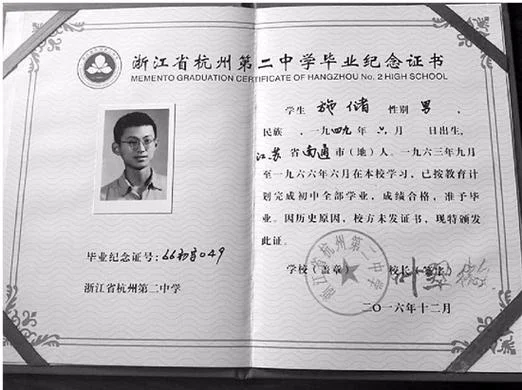 浙江省杭州第二中学毕业纪念证书
MEMENTO GRADUATION CERTIFICATE OF HANGZHOU No. 2 HIGH SCHOOL
学生 施 性别 男 ,
民族 . 一九四九年 六月 日出生,
江苏省南通市(地)人。一九六三年九月
至一九六六年六月在本校学习,已按教育计
划完成初中全部学业,成绩合格,准予毕
业。因历史原因,校方未发证书,现特颁发
此证。
学校(盖章) 校长(签字)
浙江省杭州第二中学
二〇一六年十二月
毕业纪念证号: 66初 049
浙江省杭州第二中学